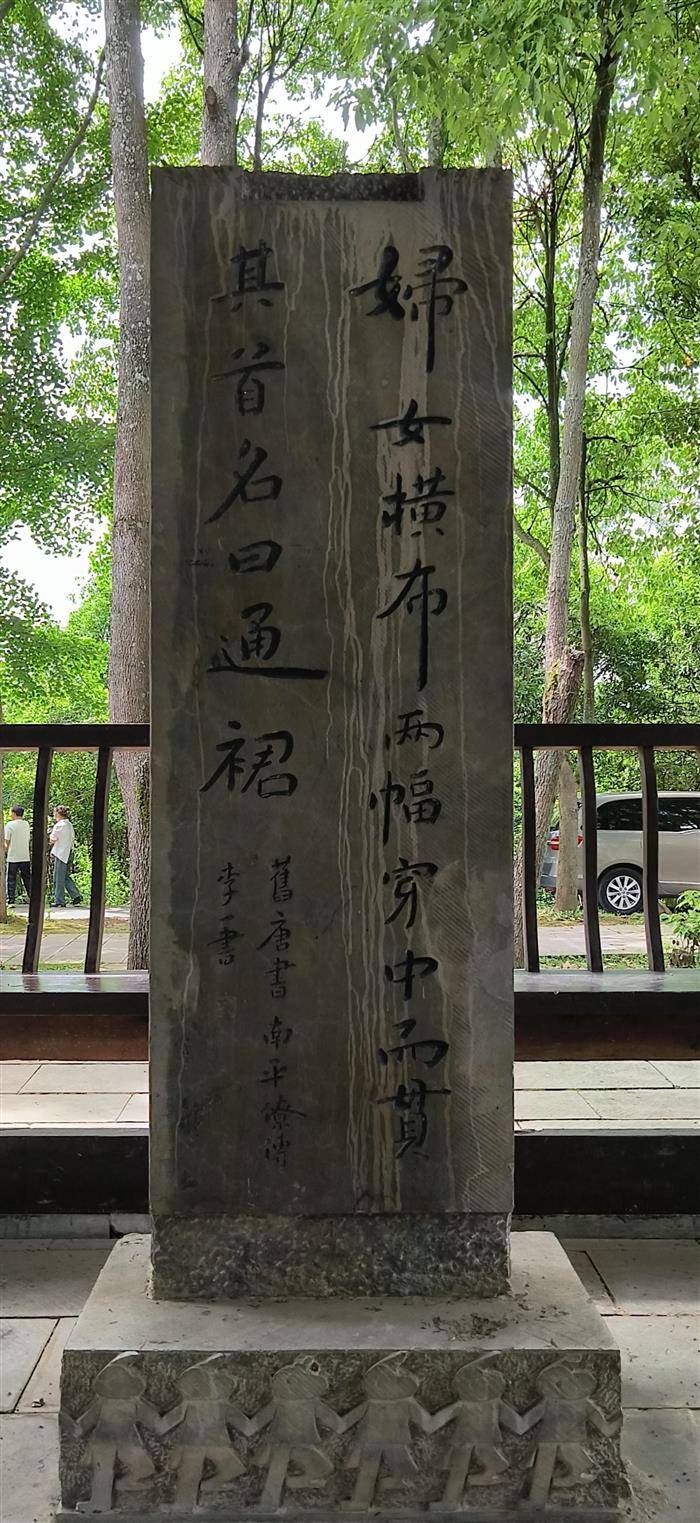 婦女橫布两幅穿中而贯
其首名曰通裙
舊唐書南平僚傳
李一書